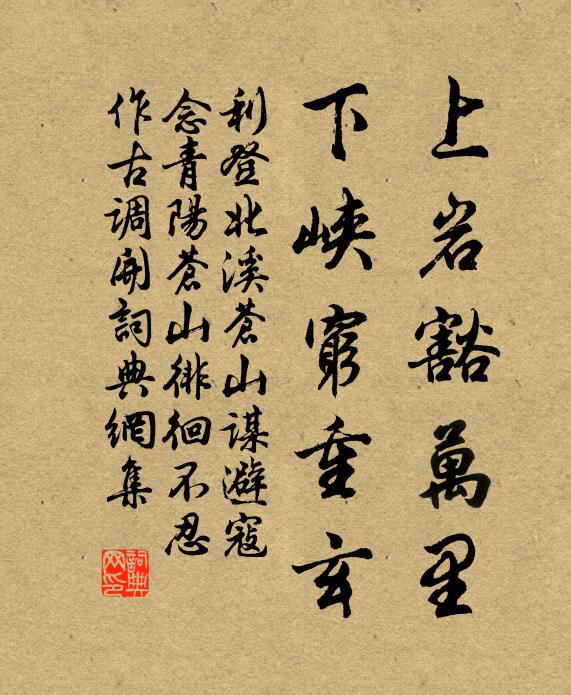 上岩豁萬里
下峽窮重玄
利登北溪蒼山謀避寇
念青陽蒼山徘徊不忍
作古調開詞典網集
詞典網印